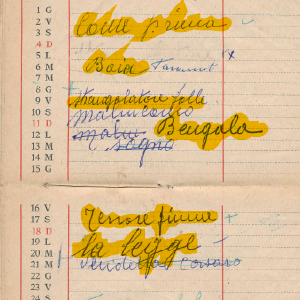 1 G
2 V Come prima
3 S
4 D
5 L
6 M Baia Tammut x
7 M
8 G
9 V strangolatore folle
10 S malinconico
11 D
12 L Bengala
13 M sogno
14 M
15 G
16 V
17 S Terrore fiume
18 D
19 L
20 M la legge
21 M Vendetta Corsaro
22 G
23 V